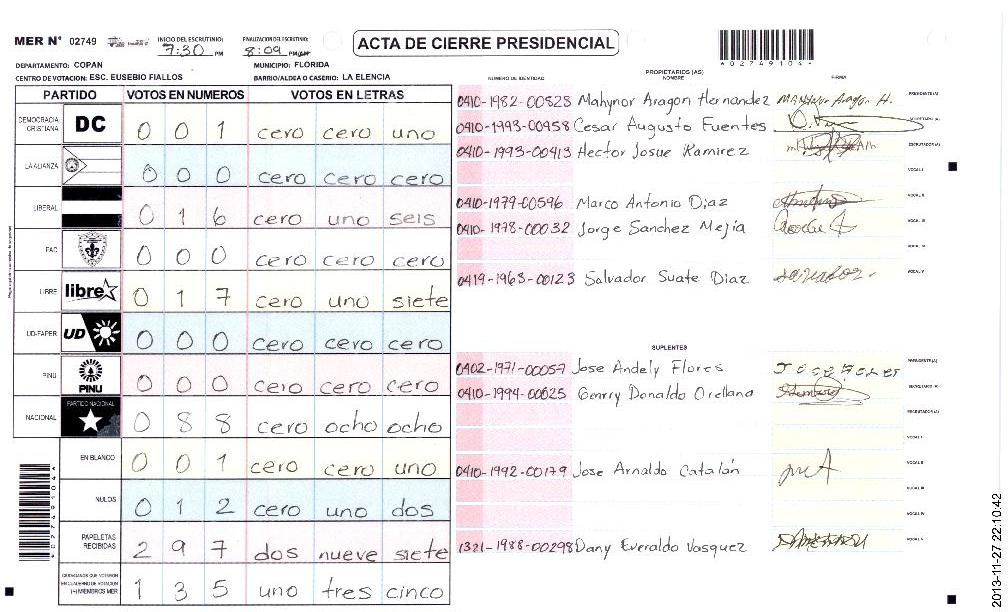 MER N° 02749
INICIO DEL ESCRUTINIO: 7:30 PM
FINALIZACION DEL ESCRUTINIO: 8:09 PM/AM
ACTA DE CIERRE PRESIDENCIAL
*02749104*
DEPARTAMENTO: COPAN
MUNICIPIO: FLORIDA
CENTRO DE VOTACION: ESC. EUSEBIO FIALLOS
BARRIO/ALDEA O CASERIO: LA ELENCIA
PARTIDO VOTOS EN NUMEROS VOTOS EN LETRAS
DEMOCRACIA CRISTIANA DC 0 0 1 cero cero uno
LA ALIANZA 0 0 0 cero cero cero
LIBERAL 0 1 6 cero uno seis
PAC 0 0 0 cero cero cero
LIBRE libre 0 1 7 cero uno siete
UD-FAPER UD 0 0 0 cero cero cero
PINU PINU 0 0 0 cero cero cero
NACIONAL PARTIDO NACIONAL 0 8 8 cero ocho ocho
EN BLANCO 0 0 1 cero cero uno
NULOS 0 1 2 cero uno dos
PAPELETAS RECIBIDAS 2 9 7 dos nueve siete
CIUDADANOS QUE VOTARON EN CUADERNO DE VOTACION (+) MIEMBROS MER 1 3 5 uno tres cinco
*02749104*
PROPIETARIOS (AS)
NUMERO DE IDENTIDAD NOMBRE FIRMA
0410-1982-00828 Mahynor Aragon Hernandez Mahynor Aragon H. PRESIDENTE(A)
0410-1993-00958 Cesar Augusto Fuentes SECRETARIO(A)
0410-1993-00413 Hector Josue Ramirez ESCRUTADOR(A)
VOCAL I
0410-1979-00596 Marco Antonio Diaz VOCAL II
0410-1978-00032 Jorge Sanchez Mejía VOCAL III
VOCAL IV
0419-1963-00123 Salvador Suate Diaz salvador VOCAL V
SUPLENTES
0402-1971-00057 Jose Andely Flores JOSE FLORES PRESIDENTE(A)
0410-1994-00625 Genrry Donaldo Orellana SECRETARIO(A)
ESCRUTADOR(A)
VOCAL I
0410-1992-00179 Jose Arnaldo Catalán VOCAL II
VOCAL III
VOCAL IV
1321-1988-00298 Dany Everaldo Vasquez VOCAL V
2013-11-27 22:10:42